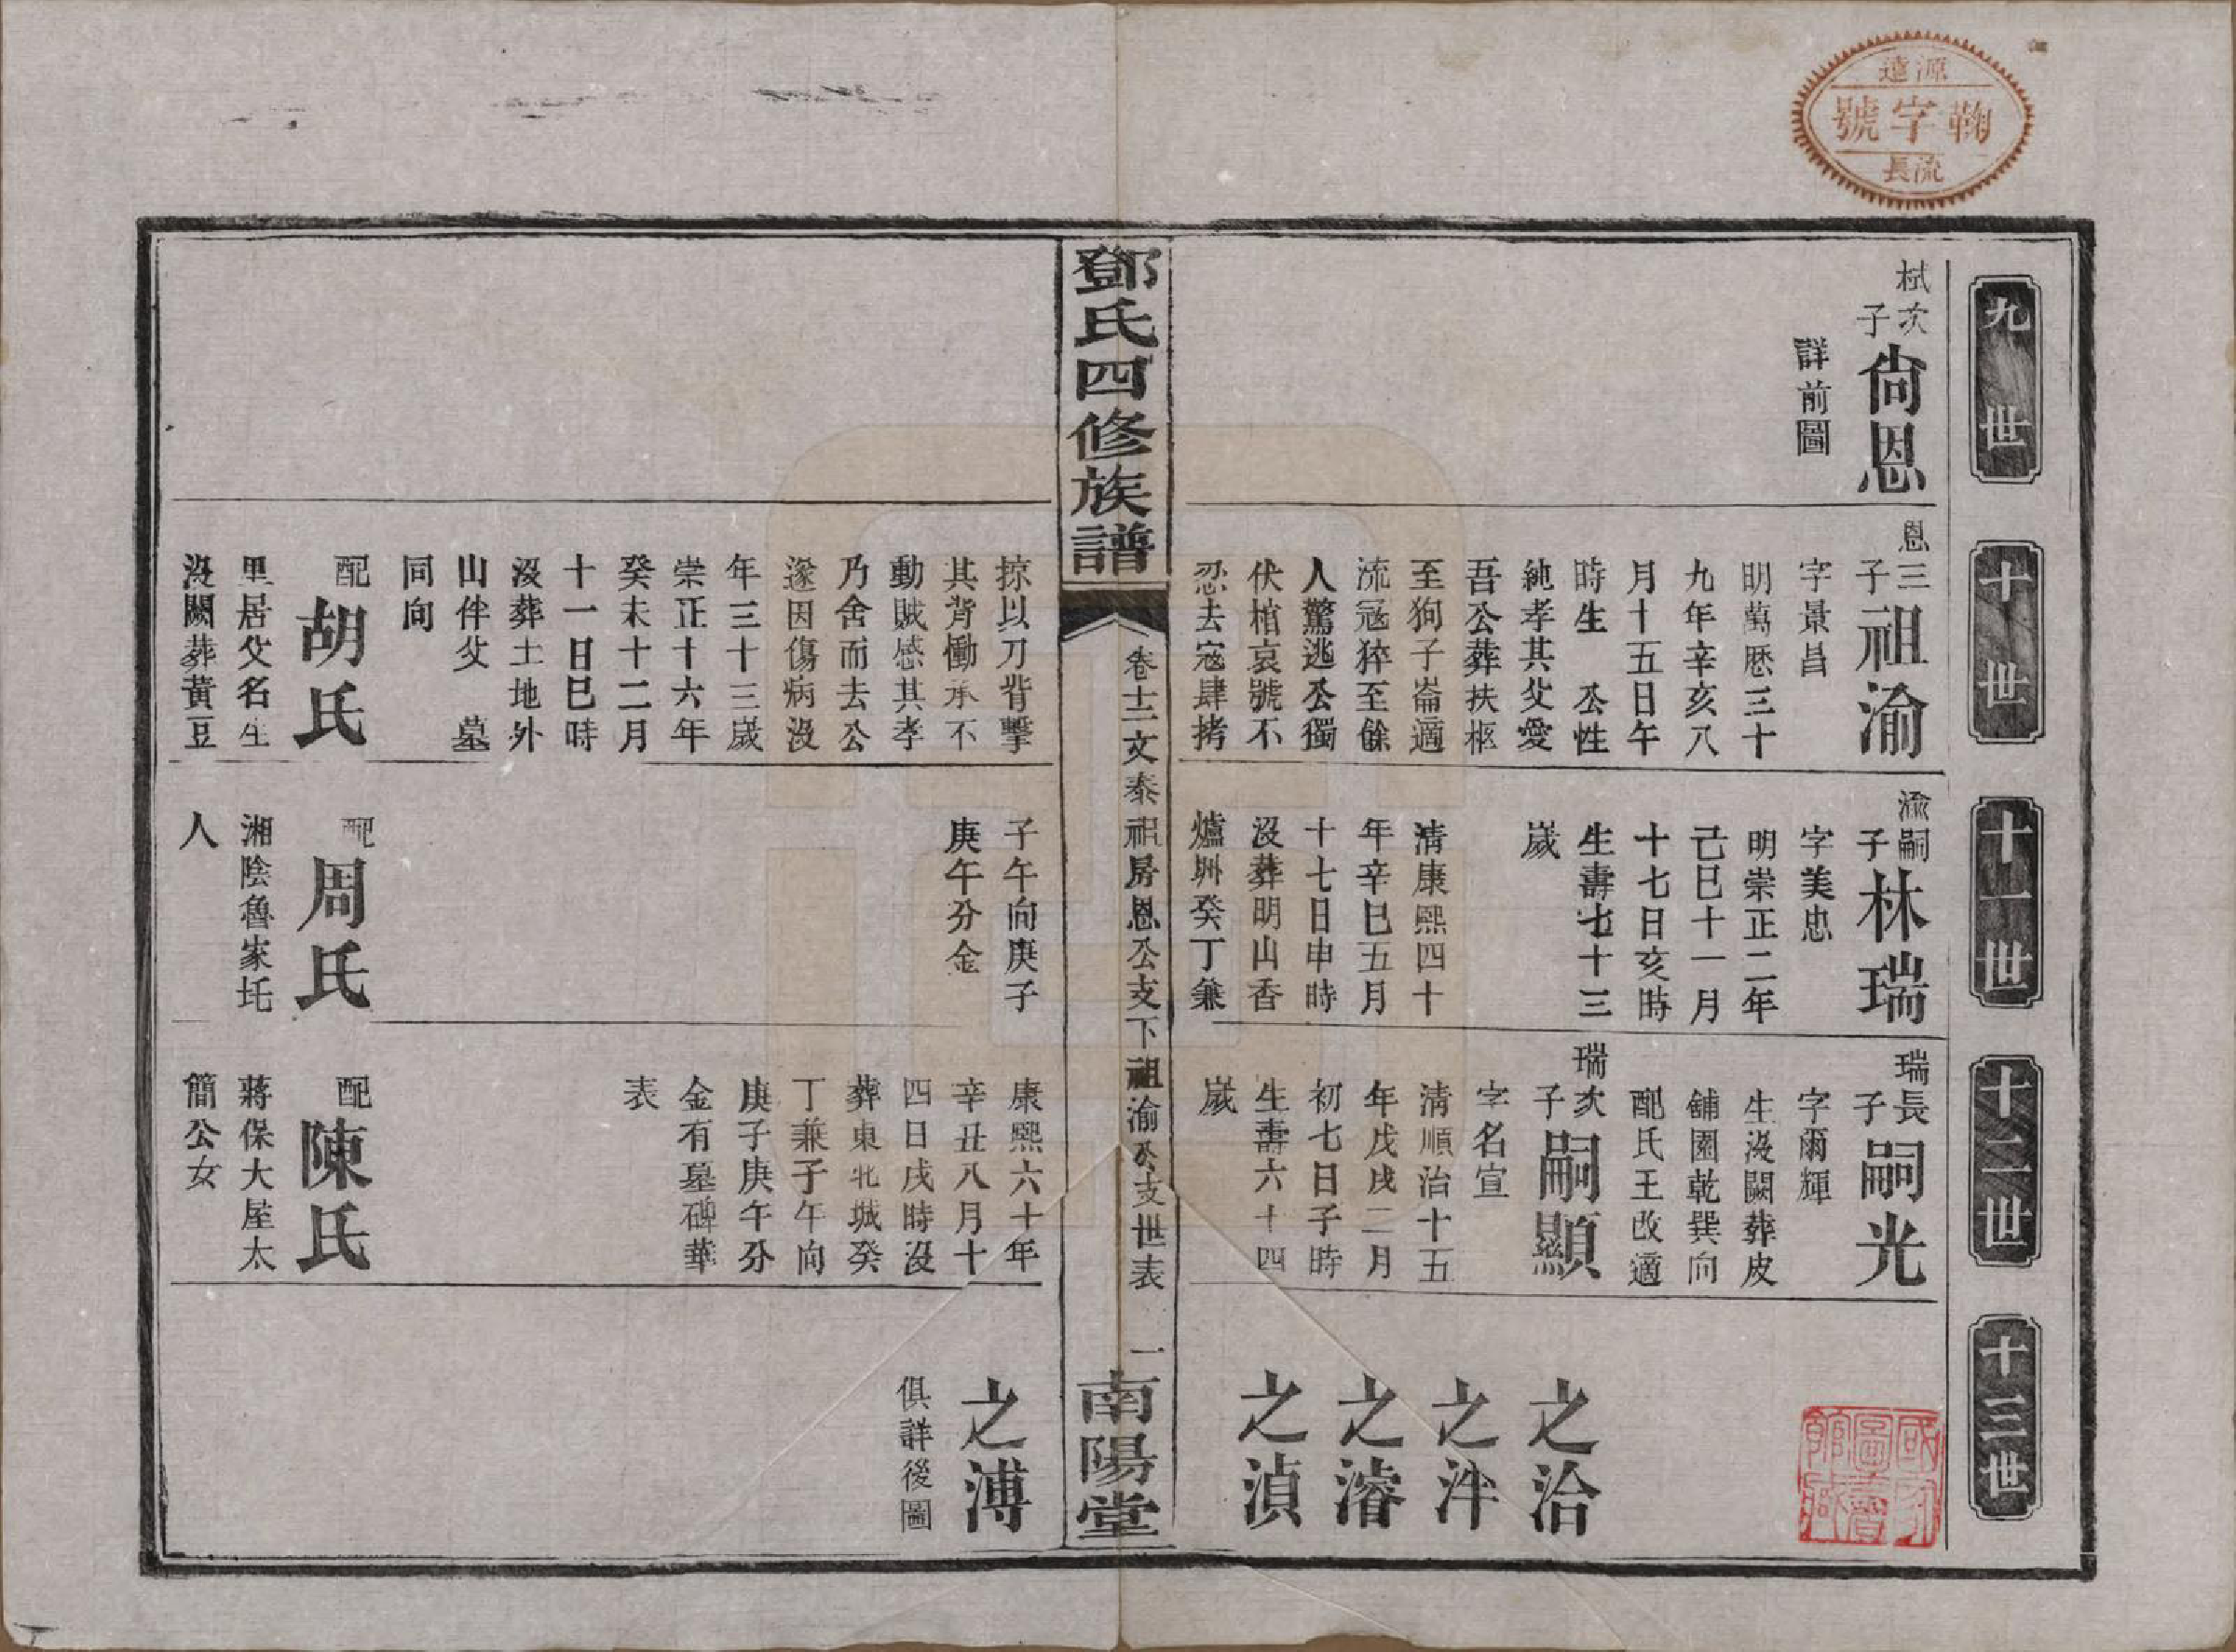 源遠
鞠字號
流長
九世
十世
十一世
十二世
十三世
栻次子
尙恩
詳前圖
恩三子
祖渝
字景昌
明萬歷三十
九年辛亥八
月十五日午
時生　公性
純孝其父愛
吾公葬扶柩
至狗子崙適
流寇猝至餘
人驚逃公獨
伏棺哀號不
忍去寇肆拷
掠以刀背擊
其背慟承不
動賊感其孝
乃舍而去公
遂因傷病沒
年三十三歲
崇正十六年
癸未十二月
十一日巳時
沒葬土地外
山伴父　墓
同向
配
胡氏
里居父名生
沒闕葬黃豆
渝嗣子
林瑞
字美忠
明崇正二年
己巳十一月
十七日亥時
生壽七十三
歲
清康熙四十
年辛巳五月
十七日申時
沒葬明山香
爐圳癸丁兼
子午向庚子
庚午分金
配
周氏
湘陰魯家圫
人
瑞長子
嗣光
字爾輝
生沒闕葬皮
鋪園乾巽向
配氏王改適
瑞次子
嗣顯
字名宣
清順治十五
年戊戌二月
初七日子時
生壽六十四
歲
康熙六十年
辛丑八月十
四日戌時沒
葬東北城癸
丁兼子午向
庚子庚午分
金有墓碑華
表
配
陳氏
蔣保大屋太
簡公女
之洽
之泮
之濬
之湞
之溥
俱詳後圖
鄧氏四修族譜
卷十二文泰祖房恩公支下祖渝公支世表　一
南陽堂
國家圖書館藏